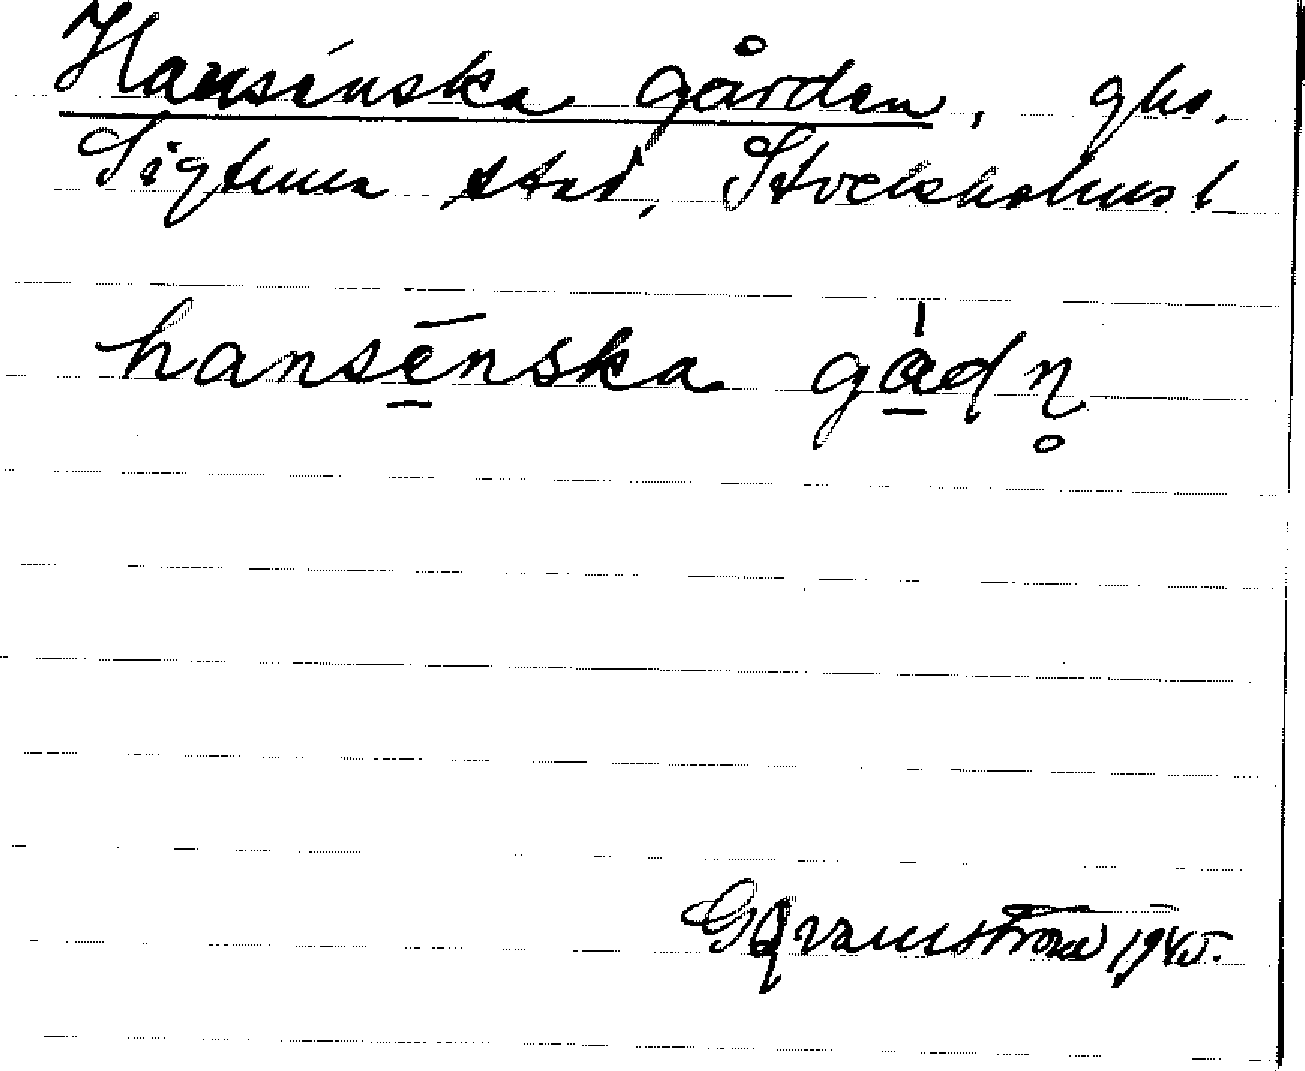 Hansénska gården, ghs.
Sigtuna stad, Stockholms l
hansēnska gådn̥
G Qvarnström 1945.